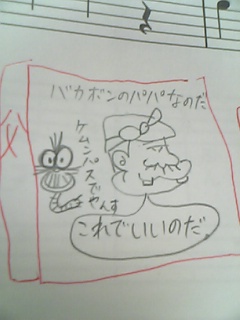 バカボンのパパなのだ
ケムンパスで
やんす
これでいいのだ